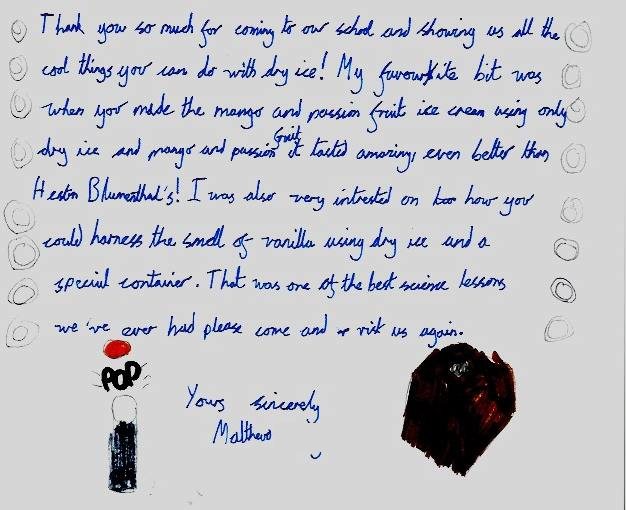 Thank you so much for coming to our school and showing us all the
cool things you can do with dry ice! My favourite bit was
when you made the mango and passion fruit ice cream using only
fruit
dry ice and mango and passion it tasted amazing, even better than
Heston Blumenthal's! I was also very intrested on how you
could harness the smell of vanilla using dry ice and a
special container. That was one of the best science lessons
we've ever had please come and visit us again.
POP
Yours sincerely
Matthew